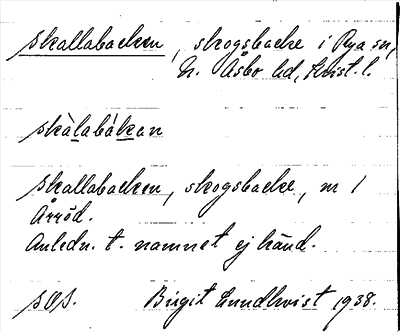 Skallabacken, skogsbacke i Rya sn,
N. Åsbo hd, Krist. l.
skàlabákan
Skallabacken, skogsbacke, nr 1
Årröd.
Anledn. t. namnet ej känd.
SOS. Birgit Lundkvist 1938.